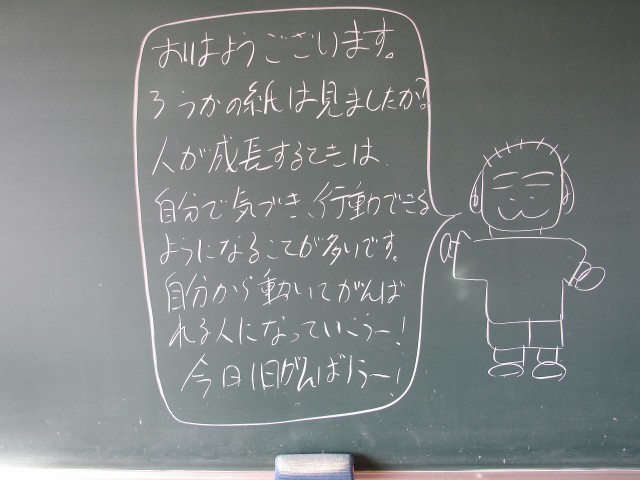 おはようございます。
ろうかの紙は見ましたか?
人が成長するときは、
自分で気づき、行動できる
ようになることが多いです。
自分から動いてがんば
れる人になっていこうー!
今日1日がんばろうー!